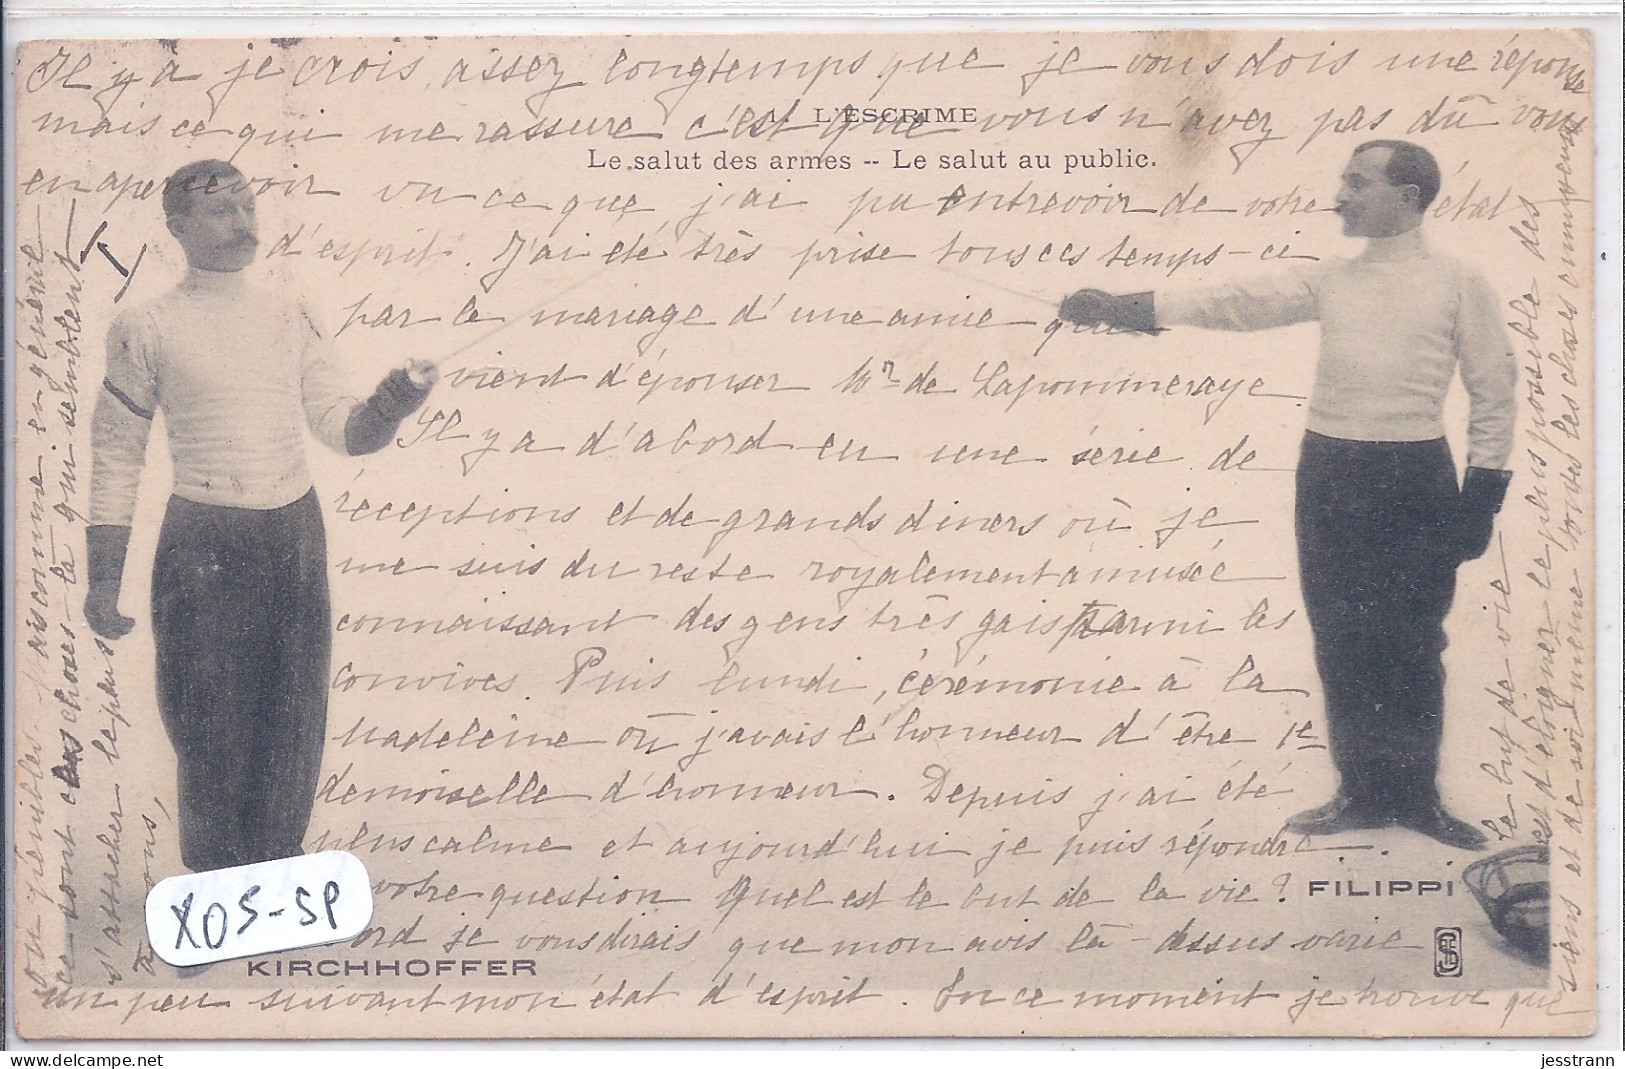 Il y a je crois, assez longtemps que je vous dois une réponse
1. L'ESCRIME
mais ce qui me rassure c'est que vous n'avez pas dû vous
Le salut des armes -- Le salut au public.
en apercevoir vu ce que j'ai pu entrevoir de votre état
d'esprit. J'ai été très prise tous ces temps-ci
par le mariage d'une amie qui
vient d'épouser Mr de Lapommeraye.
Il y a d'abord eu une série de
réceptions et de grands diners où je
me suis du reste royalement amusée
connaissant des gens très gais parmi les
convives. Puis lundi, cérémonie à la
Madeleine où j'avais l'honneur d'être 1e
demoiselle d'honneur. Depuis j'ai été
plus calme et aujourd'hui je puis répondre
votre question Quel est le but de la vie?
FILIPPI
bord je vous dirais que mon avis là-dessus varie
KIRCHHOFFER
un peu suivant mon état d'esprit. En ce moment je trouve que
le but de vie
est d'éloigner le plus possible des
siens et de soi même toutes les choses ennuyeuses
ou pénibles. Mais comme en général
ce sont ces choses-là qui semblent
s'attacher le plus
à nous,
X05-SP
jesstrann